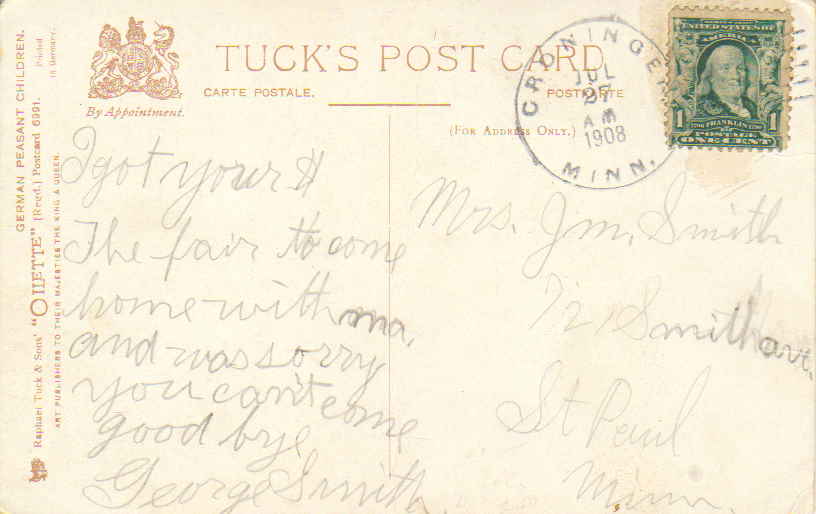 GERMAN PEASANT CHILDREN.
Printed in Germany.
Raphael Tuck & Sons' "OILETTE" [Regd.] Postcard 6991.
ART PUBLISHERS TO THEIR MAJESTIES THE KING & QUEEN.
By Appointment.
TUCK'S POST CARD
CARTE POSTALE.
POSTKARTE
(FOR ADDRESS ONLY.)
GRONINGEN
JUL
27
AM
1908
MINN.
UNITED STATES OF
AMERICA
1 FRANKLIN 1
POSTAGE
ONE CENT
I got your $
The fair to come
home with ma.
and was sorry
you can't come
good bye
George Smith
Mrs. Jm. Smith
72 Smith ave.
St Paul
Minn.